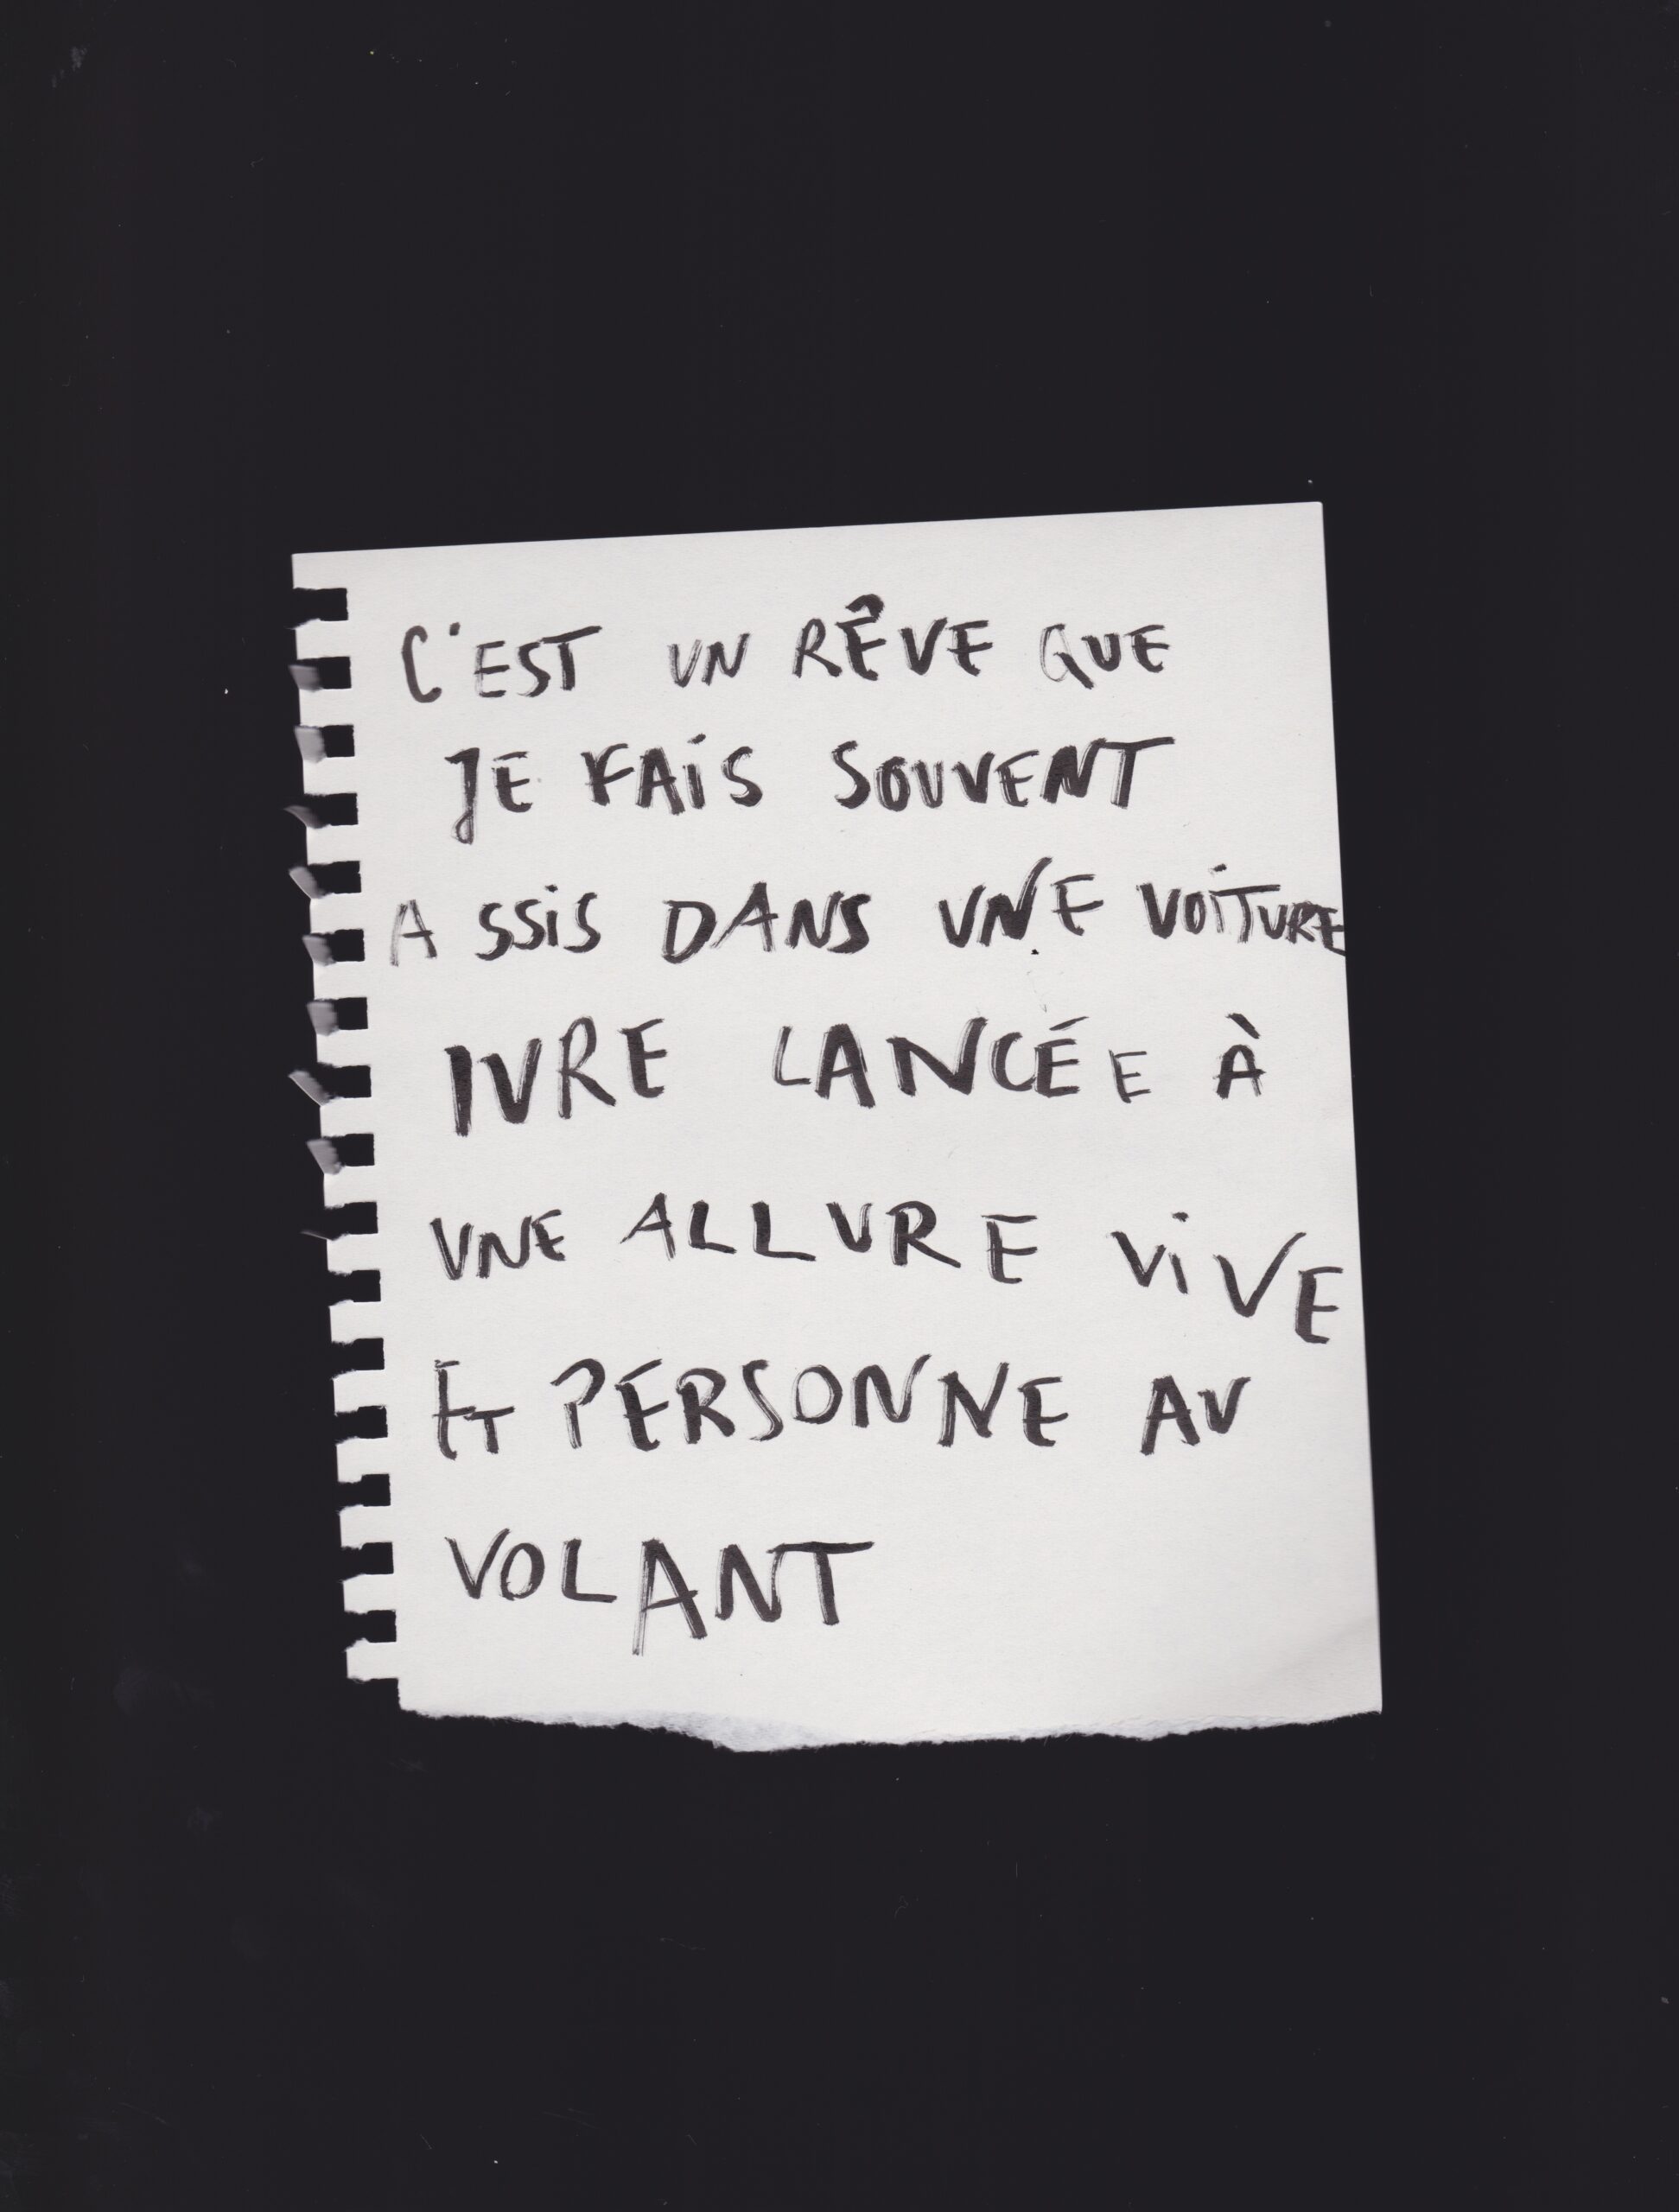 C'EST UN RÊVE QUE
JE FAIS SOUVENT
ASSIS DANS UNE VOITURE
IVRE LANCÉE À
UNE ALLURE VIVE
ET PERSONNE AU
VOLANT